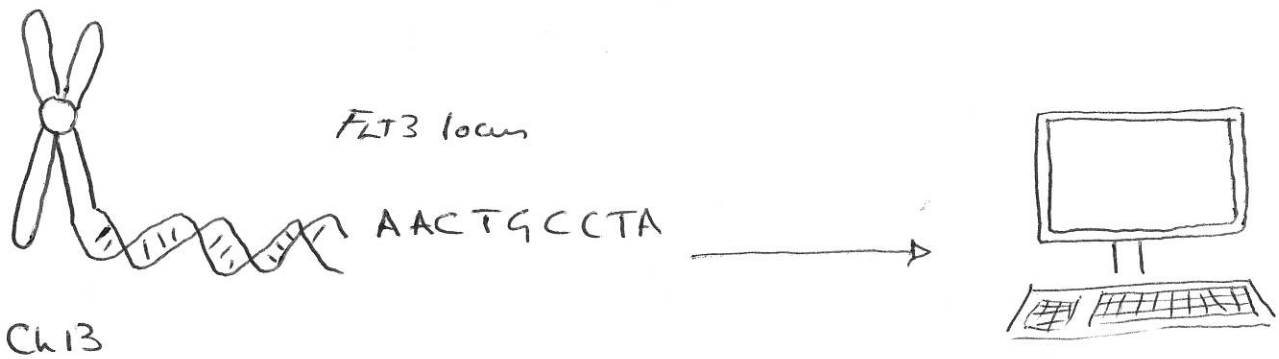 FLT3 locus
AACTGCCTA
Ch 13